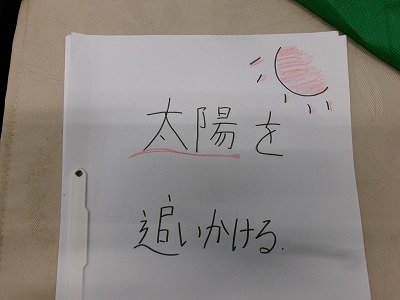 太陽を
追いかける.